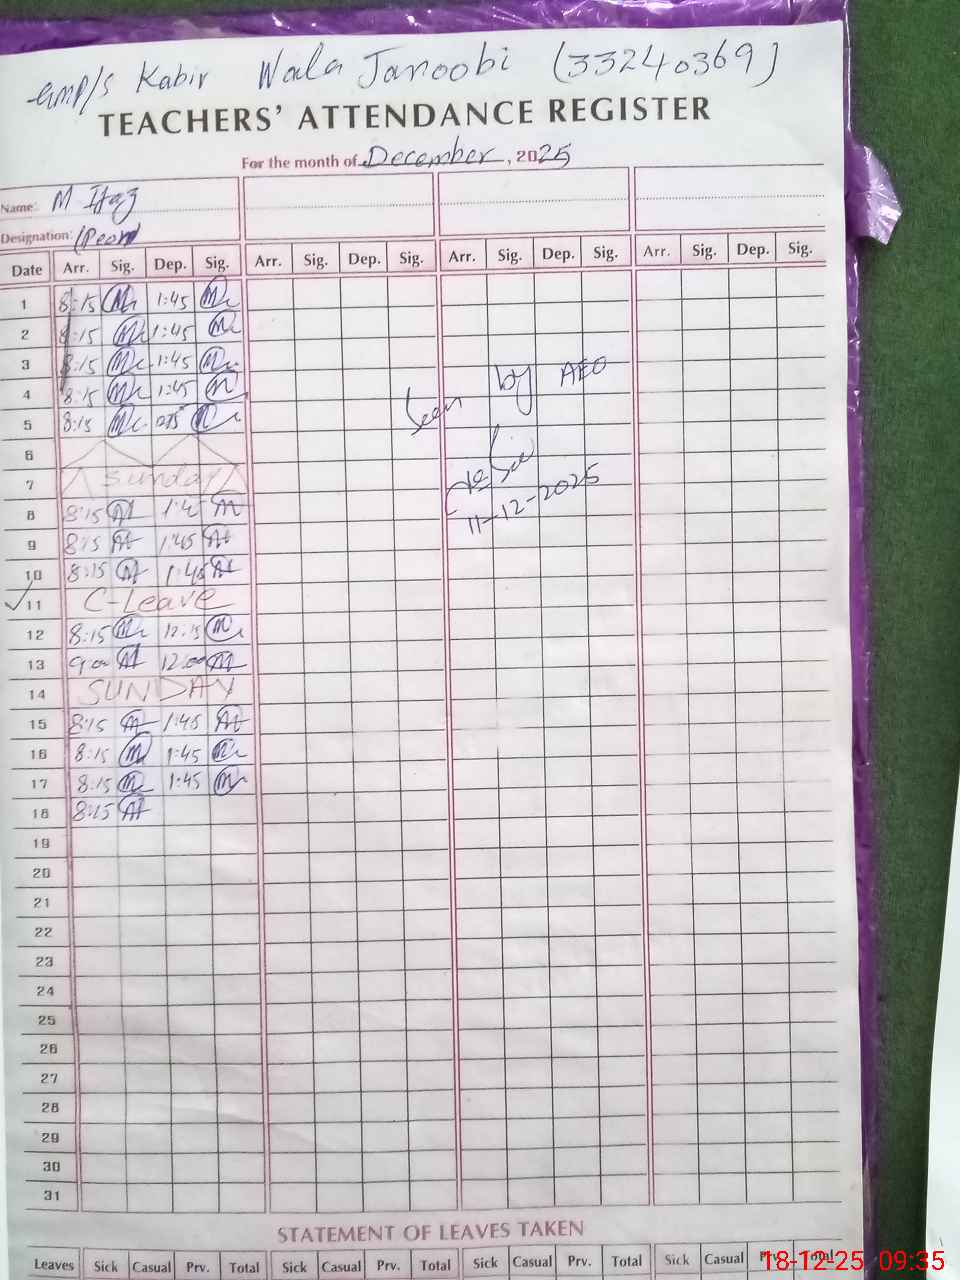 GMP/S Kabir Wala Janoobi (33240369)
TEACHERS' ATTENDANCE REGISTER
For the month of December, 2025
Name: M Ijaz
Designation: Peon
Date Arr. Sig. Dep. Sig. Arr. Sig. Dep. Sig. Arr. Sig. Dep. Sig. Arr. Sig. Dep. Sig.
1 8:15 1:45
2 8:15 1:45
3 8:15 1:45
Seen by AEO
4 8:15 1:45
5 8:15
6
7 Sunday
11-12-2025
8 8:15 1:45
9 8:15 1:45
10 8:15 1:45
11 C-Leave
12 8:15 12:15
13 9:00 12:00
14 SUNDAY
15 8:15 1:45
16 8:15 1:45
17 8:15 1:45
18 8:15
19
20
21
22
23
24
25
26
27
28
29
30
31
STATEMENT OF LEAVES TAKEN
Leaves Sick Casual Prv. Total Sick Casual Prv. Total Sick Casual Prv. Total Sick Casual Prv. Total
18-12-25 09:35